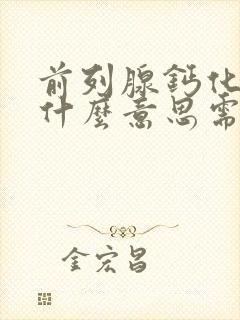 前列腺鈣化
什麼意思需
金宏昌